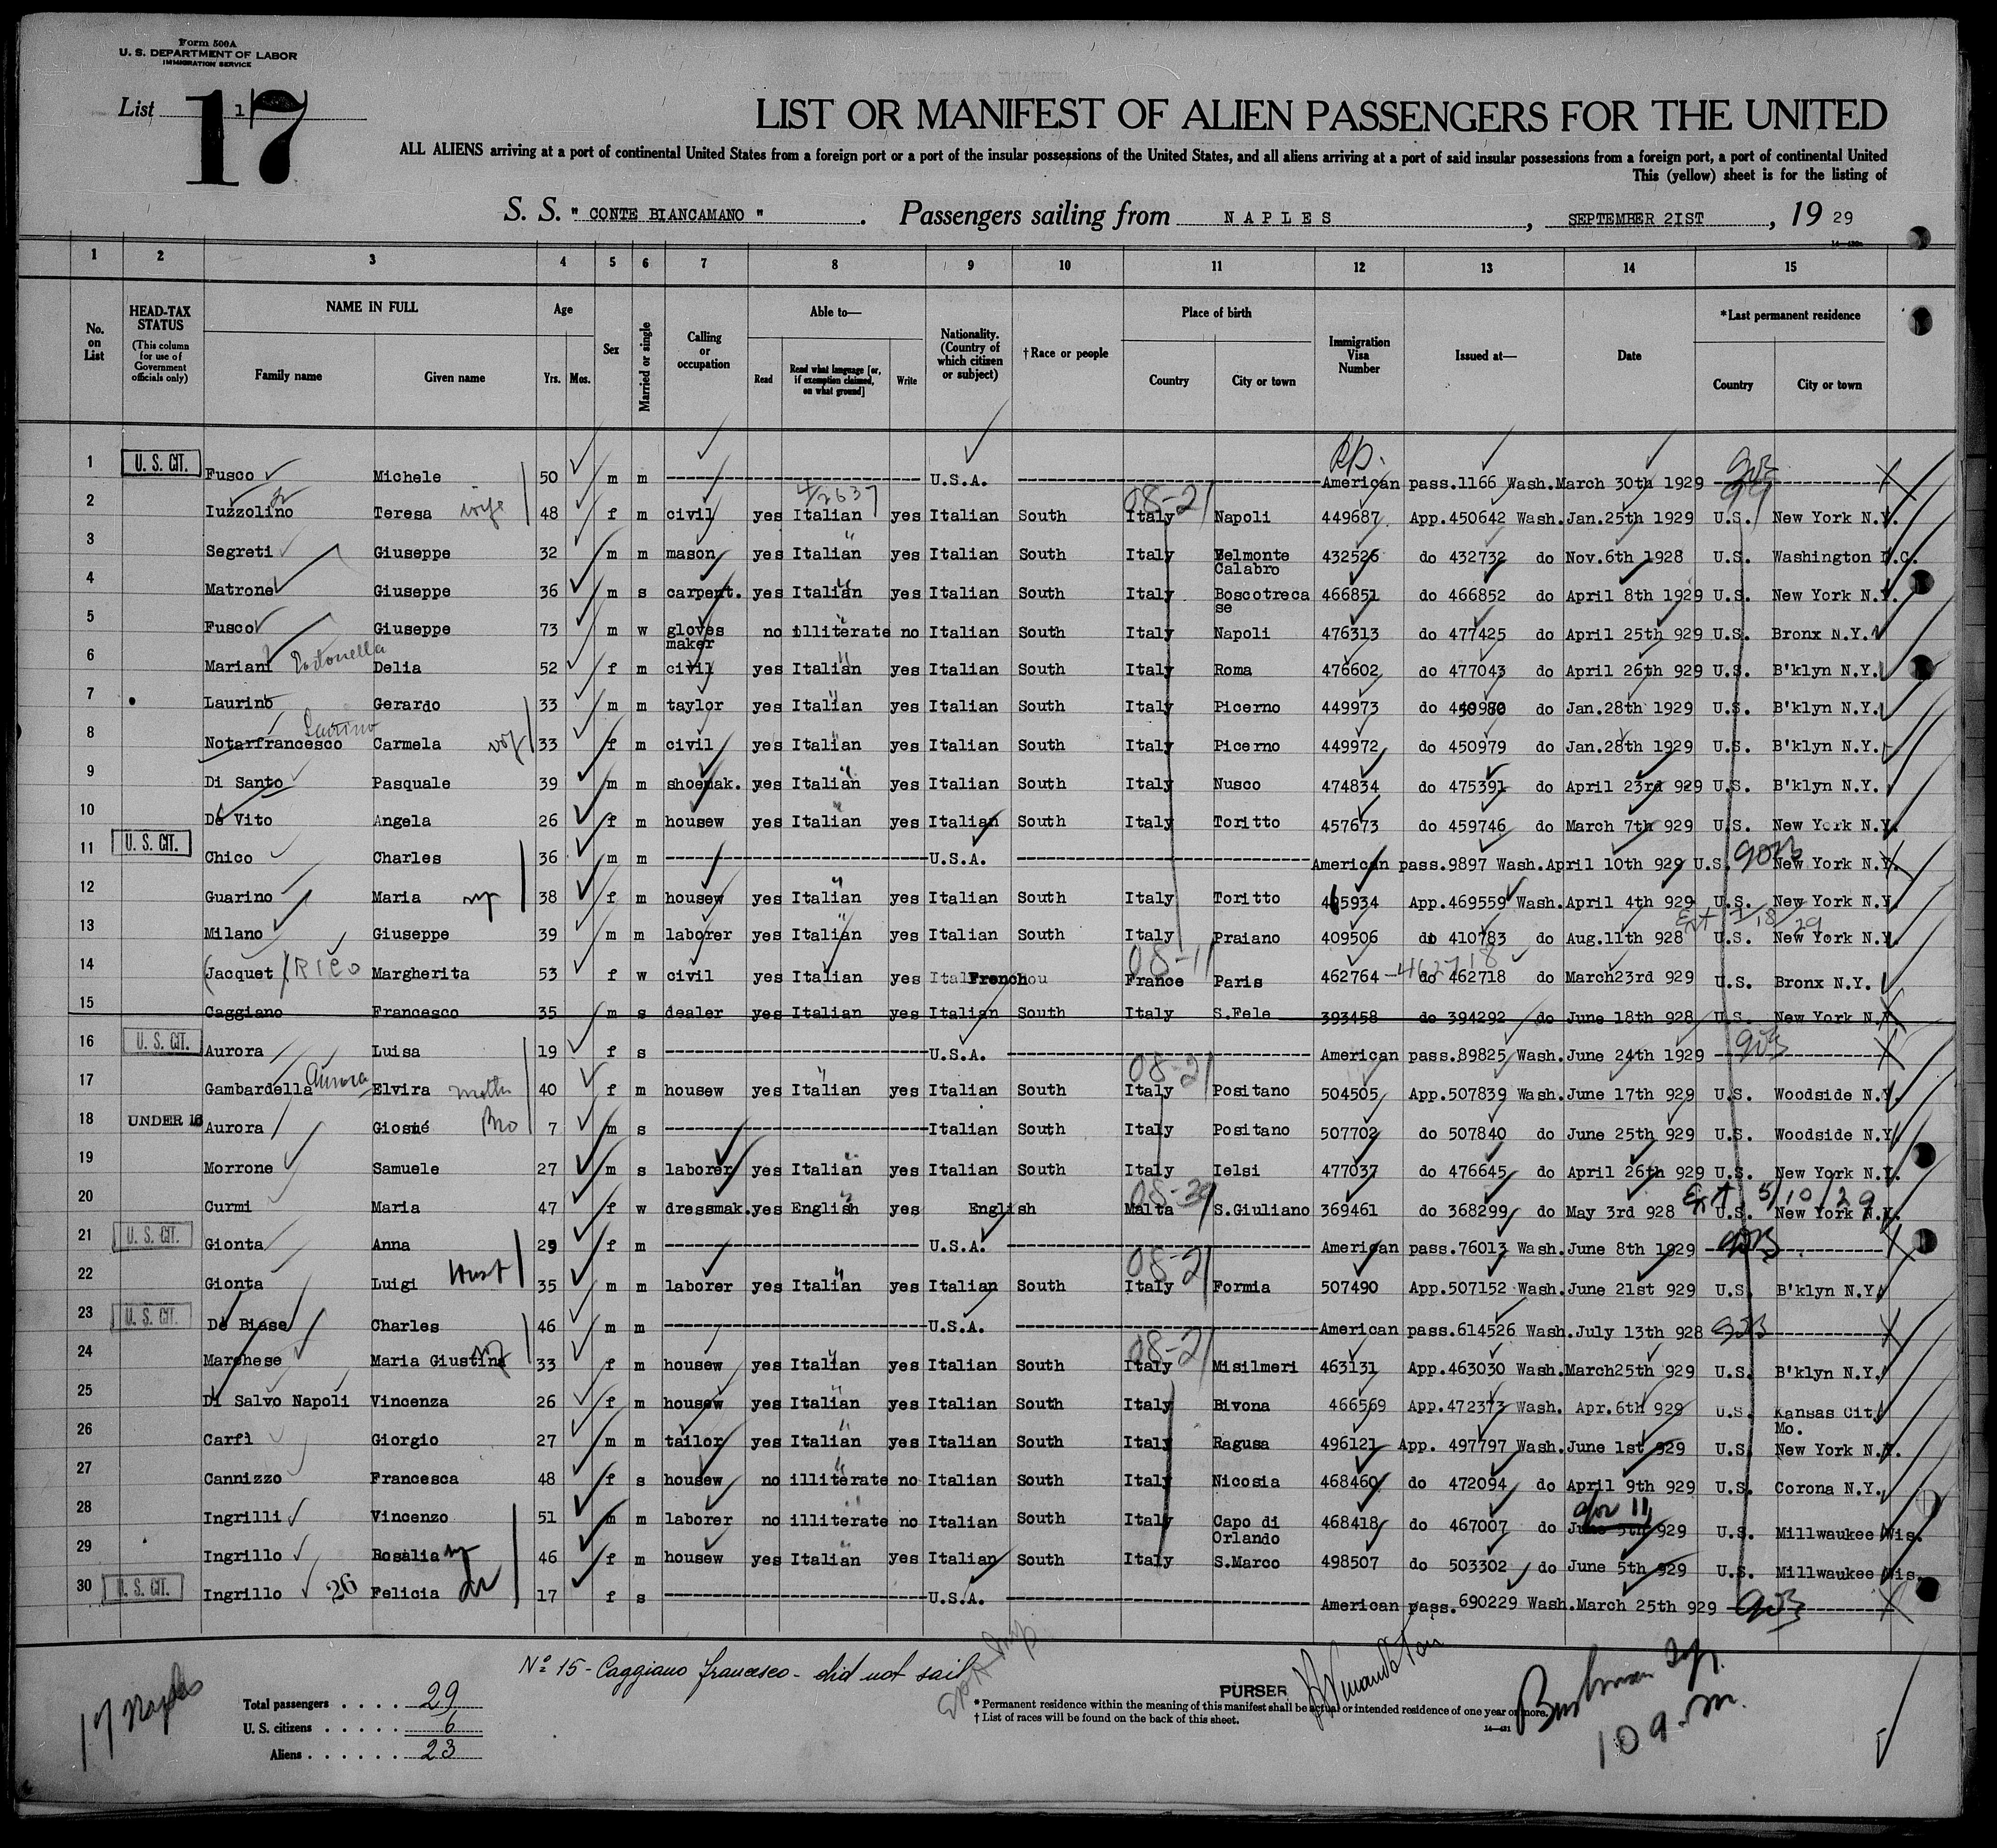 Form 500A
U. S. DEPARTMENT OF LABOR
IMMIGRATION SERVICE
List 17
17
LIST OR MANIFEST OF ALIEN PASSENGERS FOR THE UNITED
ALL ALIENS arriving at a port of continental United States from a foreign port or a port of the insular possessions of the United States, and all aliens arriving at a port of said insular possessions from a foreign port, a port of continental United
This (yellow) sheet is for the listing of
S. S. " CONTE BIANCAMANO " . Passengers sailing from NAPLES , SEPTEMBER 21ST , 19 29
1 2 3 4 5 6 7 8 9 10 11 12 13 14 15
No. on List HEAD-TAX STATUS (This column for use of Government officials only) NAME IN FULL Family name Given name Age Yrs. Mos. Sex Married or single Calling or occupation Able to— Read Read what language [or, if exemption claimed, on what ground] Write Nationality. (Country of which citizen or subject) †Race or people Place of birth Country City or town Immigration Visa Number Issued at— Date *Last permanent residence Country City or town
1 U. S. CIT. Fusco Michele 50 m m U.S.A. American pass.1166 Wash. March 30th 1929 903
2 Iuzzolino Teresa wife 48 f m civil yes Italian yes Italian South Italy 08-21 Napoli 449687 App.450642 Wash. Jan.25th 1929 U.S. New York N.Y.
3 Segreti Giuseppe 32 m m mason yes Italian yes Italian South Italy Belmonte Calabro 432526 do 432732 do Nov.6th 1928 U.S. Washington D.C.
4 Matrone Giuseppe 36 m s carpent. yes Italian yes Italian South Italy Boscotreca se 466851 do 466852 do April 8th 1929 U.S. New York N.Y.
5 Fusco Giuseppe 73 m w gloves maker no illiterate no Italian South Italy Napoli 476313 do 477425 do April 25th 929 U.S. Bronx N.Y.
6 Mariani Delia 52 f m civil yes Italian yes Italian South Italy Roma 476602 do 477043 do April 26th 929 U.S. B'klyn N.Y.
7 Laurino Gerardo 33 m m taylor yes Italian yes Italian South Italy Picerno 449973 do do Jan.28th 1929 U.S. B'klyn N.Y.
8 Notarfrancesco Laurino Carmela wf 33 f m civil yes Italian yes Italian South Italy Picerno 449972 do 450979 do Jan.28th 1929 U.S. B'klyn N.Y.
9 Di Santo Pasquale 39 m m shoemak. yes Italian yes Italian South Italy Nusco 474834 do 475391 do April 23rd 929 U.S. B'klyn N.Y.
10 De Vito Angela 26 f m housew yes Italian yes Italian South Italy Toritto 457673 do 459746 do March 7th 929 U.S. New York N.Y.
11 U. S. CIT. Chico Charles 36 m m U.S.A. American pass.9897 Wash. April 10th 929 U.S. 903 New York N.Y.
12 Guarino Maria wf 38 f m housew yes Italian yes Italian South Italy Toritto 465934 App.469559 Wash. April 4th 929 U.S. New York N.Y.
13 Milano Giuseppe 39 m m laborer yes Italian yes Italian South Italy Praiano 409506 do 410783 do Aug.11th 928 U.S. New York N.Y.
14 (Jacquet) Rico Margherita 53 f w civil yes Italian yes French France 08-11 Paris 462764 - 462718 do 462718 do March23rd 929 U.S. Bronx N.Y.
15 Caggiano Francesco 35 m s dealer yes Italian yes Italian South Italy S.Fele 393458 do 394292 do June 18th 928 U.S. New York N.Y.
16 U. S. CIT. Aurora Luisa 19 f s U.S.A. American pass.89825 Wash. June 24th 1929 903
17 Gambardella Aurora Elvira mother 40 f m housew yes Italian yes Italian South Italy 08-21 Positano 504505 App.507839 Wash. June 17th 929 U.S. Woodside N.Y.
18 UNDER 16 Aurora Giosué Bro 7 m s Italian South Italy Positano 507702 do 507840 do June 25th 929 U.S. Woodside N.Y.
19 Morrone Samuele 27 m s laborer yes Italian yes Italian South Italy Ielsi 477037 do 476645 do April 26th 929 U.S. New York N.Y.
20 Curmi Maria 47 f w dressmak. yes English yes English Malta S.Giuliano 369461 do 368299 do May 3rd 928 Ext 5/10/29 U.S. New York N.Y.
21 U. S. CIT. Gionta Anna 29 f m U.S.A. American pass.76013 Wash. June 8th 1929 903
22 Gionta Luigi Hust 35 m m laborer yes Italian yes Italian South Italy 08-21 Formia 507490 App.507152 Wash. June 21st 929 U.S. B'klyn N.Y.
23 U. S. CIT. De Biase Charles 46 m m U.S.A. American pass.614526 Wash. July 13th 928 903
24 Marchese Maria Giustina wf 33 f m housew yes Italian yes Italian South Italy 08-21 Misilmeri 463131 App.463030 Wash. March25th 929 U.S. B'klyn N.Y.
25 Di Salvo Napoli Vincenza 26 f m housew yes Italian yes Italian South Italy Bivona 466569 App.472373 Wash. Apr.6th 929 U.S. Kansas City Mo.
26 Carfì Giorgio 27 m m tailor yes Italian yes Italian South Italy Ragusa 496121 App. 497797 Wash. June 1st 929 U.S. New York N.Y.
27 Cannizzo Francesca 48 f s housew no illiterate no Italian South Italy Nicosia 468460 do 472094 do April 9th 929 U.S. Corona N.Y.
28 Ingrilli Vincenzo 51 m m laborer no illiterate no Italian South Italy Capo di Orlando 468418 do 467007 do June 5th 929 U.S. Millwaukee Wis.
29 Ingrillo Rosalia wf 46 f m housew yes Italian yes Italian South Italy S.Marco 498507 do 503302 do June 5th 929 U.S. Millwaukee Wis.
30 U. S. CIT. Ingrillo 26 Felicia 17 f s U.S.A. American pass. 690229 Wash. March 25th 929 903
No 15 - Caggiano francesco - did not sail
17 Naples
Total passengers . . . . 29
U. S. citizens . . . . . 6
Aliens . . . . . . 23
PURSER
* Permanent residence within the meaning of this manifest shall be actual or intended residence of one year or more.
† List of races will be found on the back of this sheet.
10 a.m.